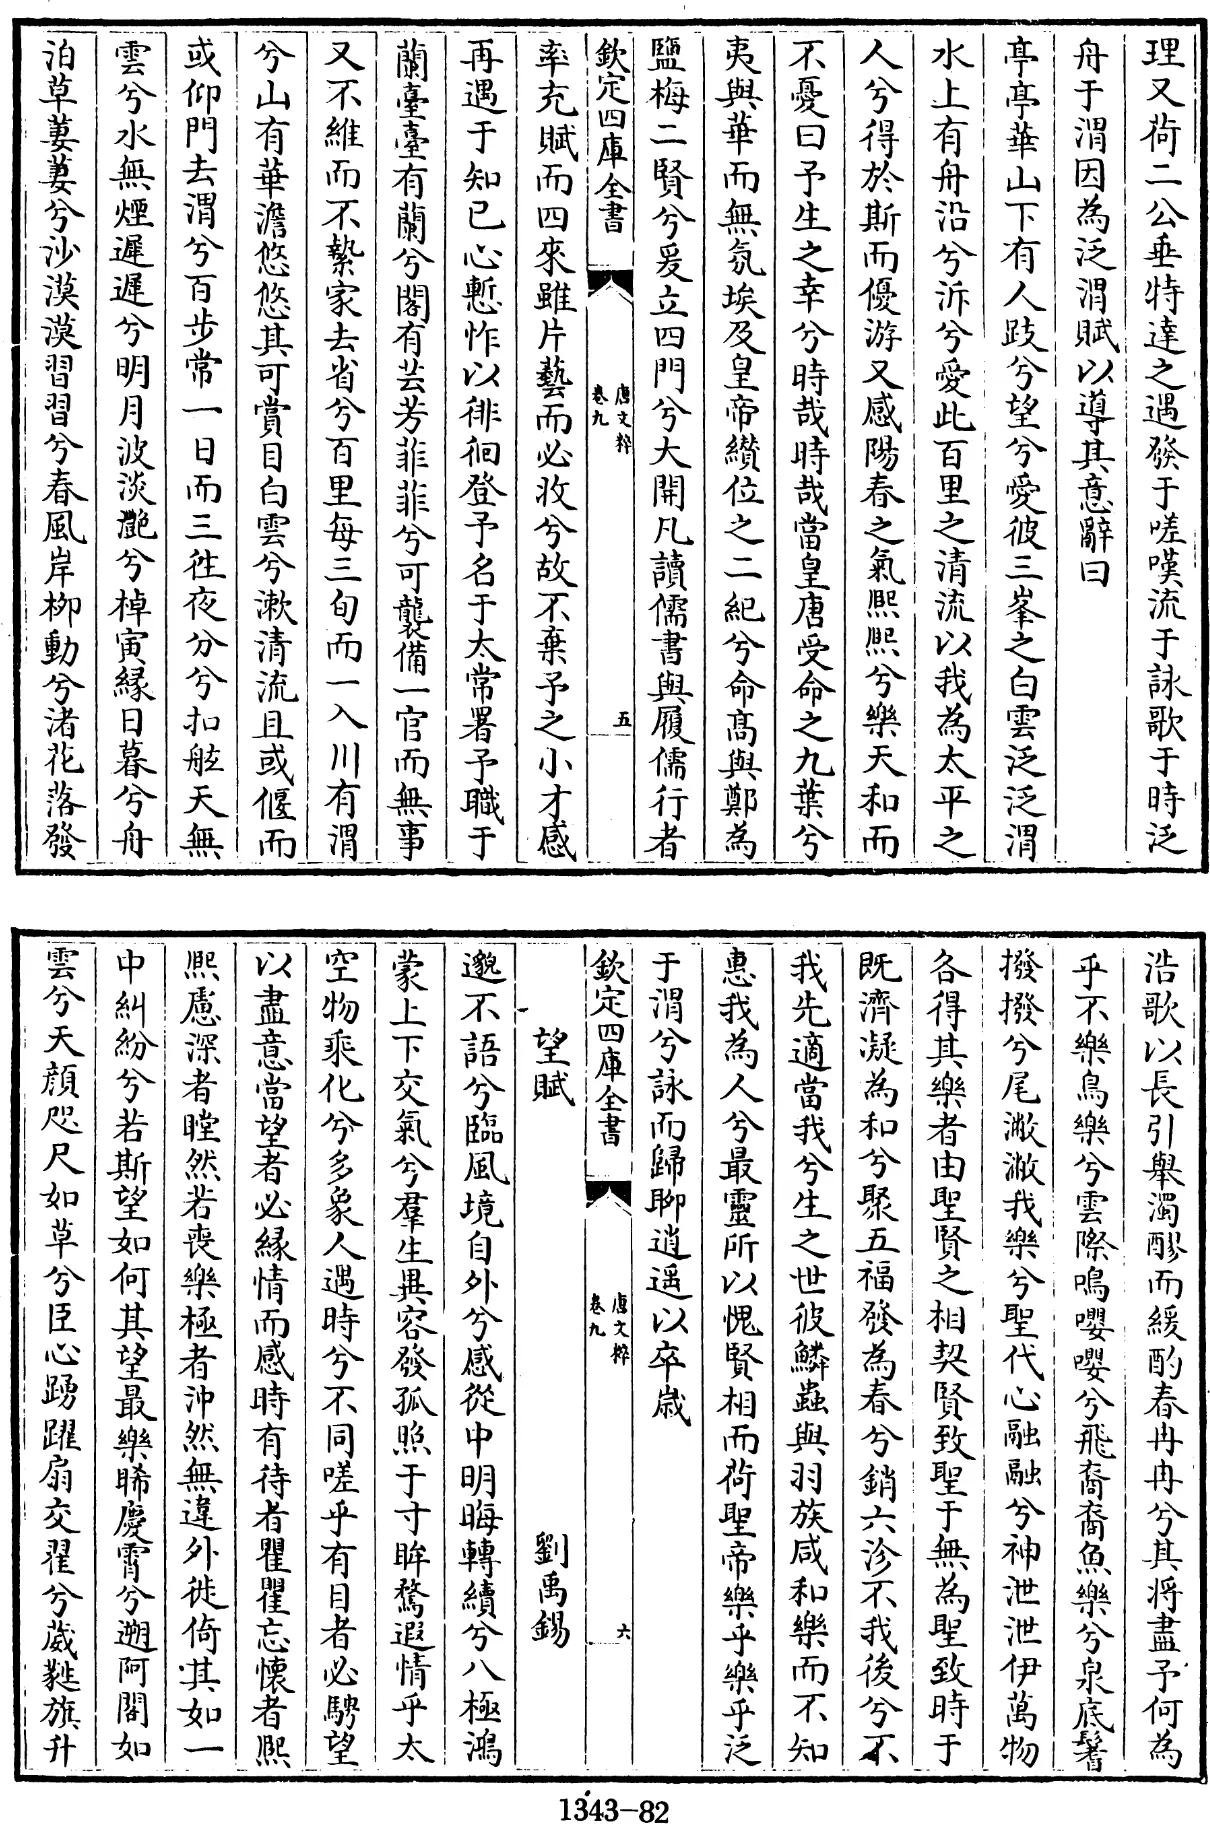 理又荷二公垂特達之遇發于嗟嘆流于詠歌于時泛
舟于渭因為泛渭賦以導其意辭曰
亭亭華山下有人跂兮望兮愛彼三峯之白雲泛泛渭
水上有舟沿兮泝兮愛此百里之清流以我為太平之
人兮得於斯而優游又感陽春之氣熙熙兮樂天和而
不憂曰予生之幸兮時哉時哉當皇唐受命之九葉兮
夷與華而無氛埃及皇帝纘位之二紀兮命髙與鄭為
鹽梅二賢兮爰立四門兮大開凡讀儒書與履儒行者
欽定四庫全書
唐文粹
卷九
五
率充賦而四來雖片藝而必收兮故不棄予之小才感
再遇于知已心慙怍以徘徊登予名于太常署予職于
蘭臺臺有蘭兮閣有芸芳菲菲兮可襲備一官而無事
又不維而不縶家去省兮百里每三旬而一入川有渭
兮山有華澹悠悠其可賞目白雲兮漱清流且或偃而
或仰門去渭兮百步常一日而三徃夜分兮扣舷天無
雲兮水無煙遲遲兮明月波淡灩兮棹寅緣日暮兮舟
泊草萋萋兮沙漠漠習習兮春風岸柳動兮渚花落發
浩歌以長引舉濁醪而緩酌春冉冉兮其将盡予何為
乎不樂鳥樂兮雲際鳴嚶嚶兮飛裔裔魚樂兮泉底鬐
撥撥兮尾潎潎我樂兮聖代心融融兮神泄泄伊萬物
各得其樂者由聖賢之相契賢致聖于無為聖致時于
既濟凝為和兮聚五福發為春兮銷六沴不我後兮不
我先適當我兮生之世彼鱗蟲與羽族咸和樂而不知
惠我為人兮最靈所以愧賢相而荷聖帝樂乎樂乎泛
于渭兮詠而歸聊逍遥以卒歲
欽定四庫全書
唐文粹
卷九
六
望賦 劉禹錫
邈不語兮臨風境自外兮感從中明晦轉續兮八極鴻
蒙上下交氣兮羣生異容發孤照于寸眸騖遐情乎太
空物乘化兮多象人遇時兮不同嗟乎有目者必騁望
以盡意當望者必縁情而感時有待者瞿瞿忘懷者熙
熙慮深者瞠然若喪樂極者沖然無違外徙倚其如一
中糾紛兮若斯望如何其望最樂睎慶霄兮遡阿閣如
雲兮天顔咫尺如草兮臣心踴躍扇交翟兮葳蕤旗升
1343-82